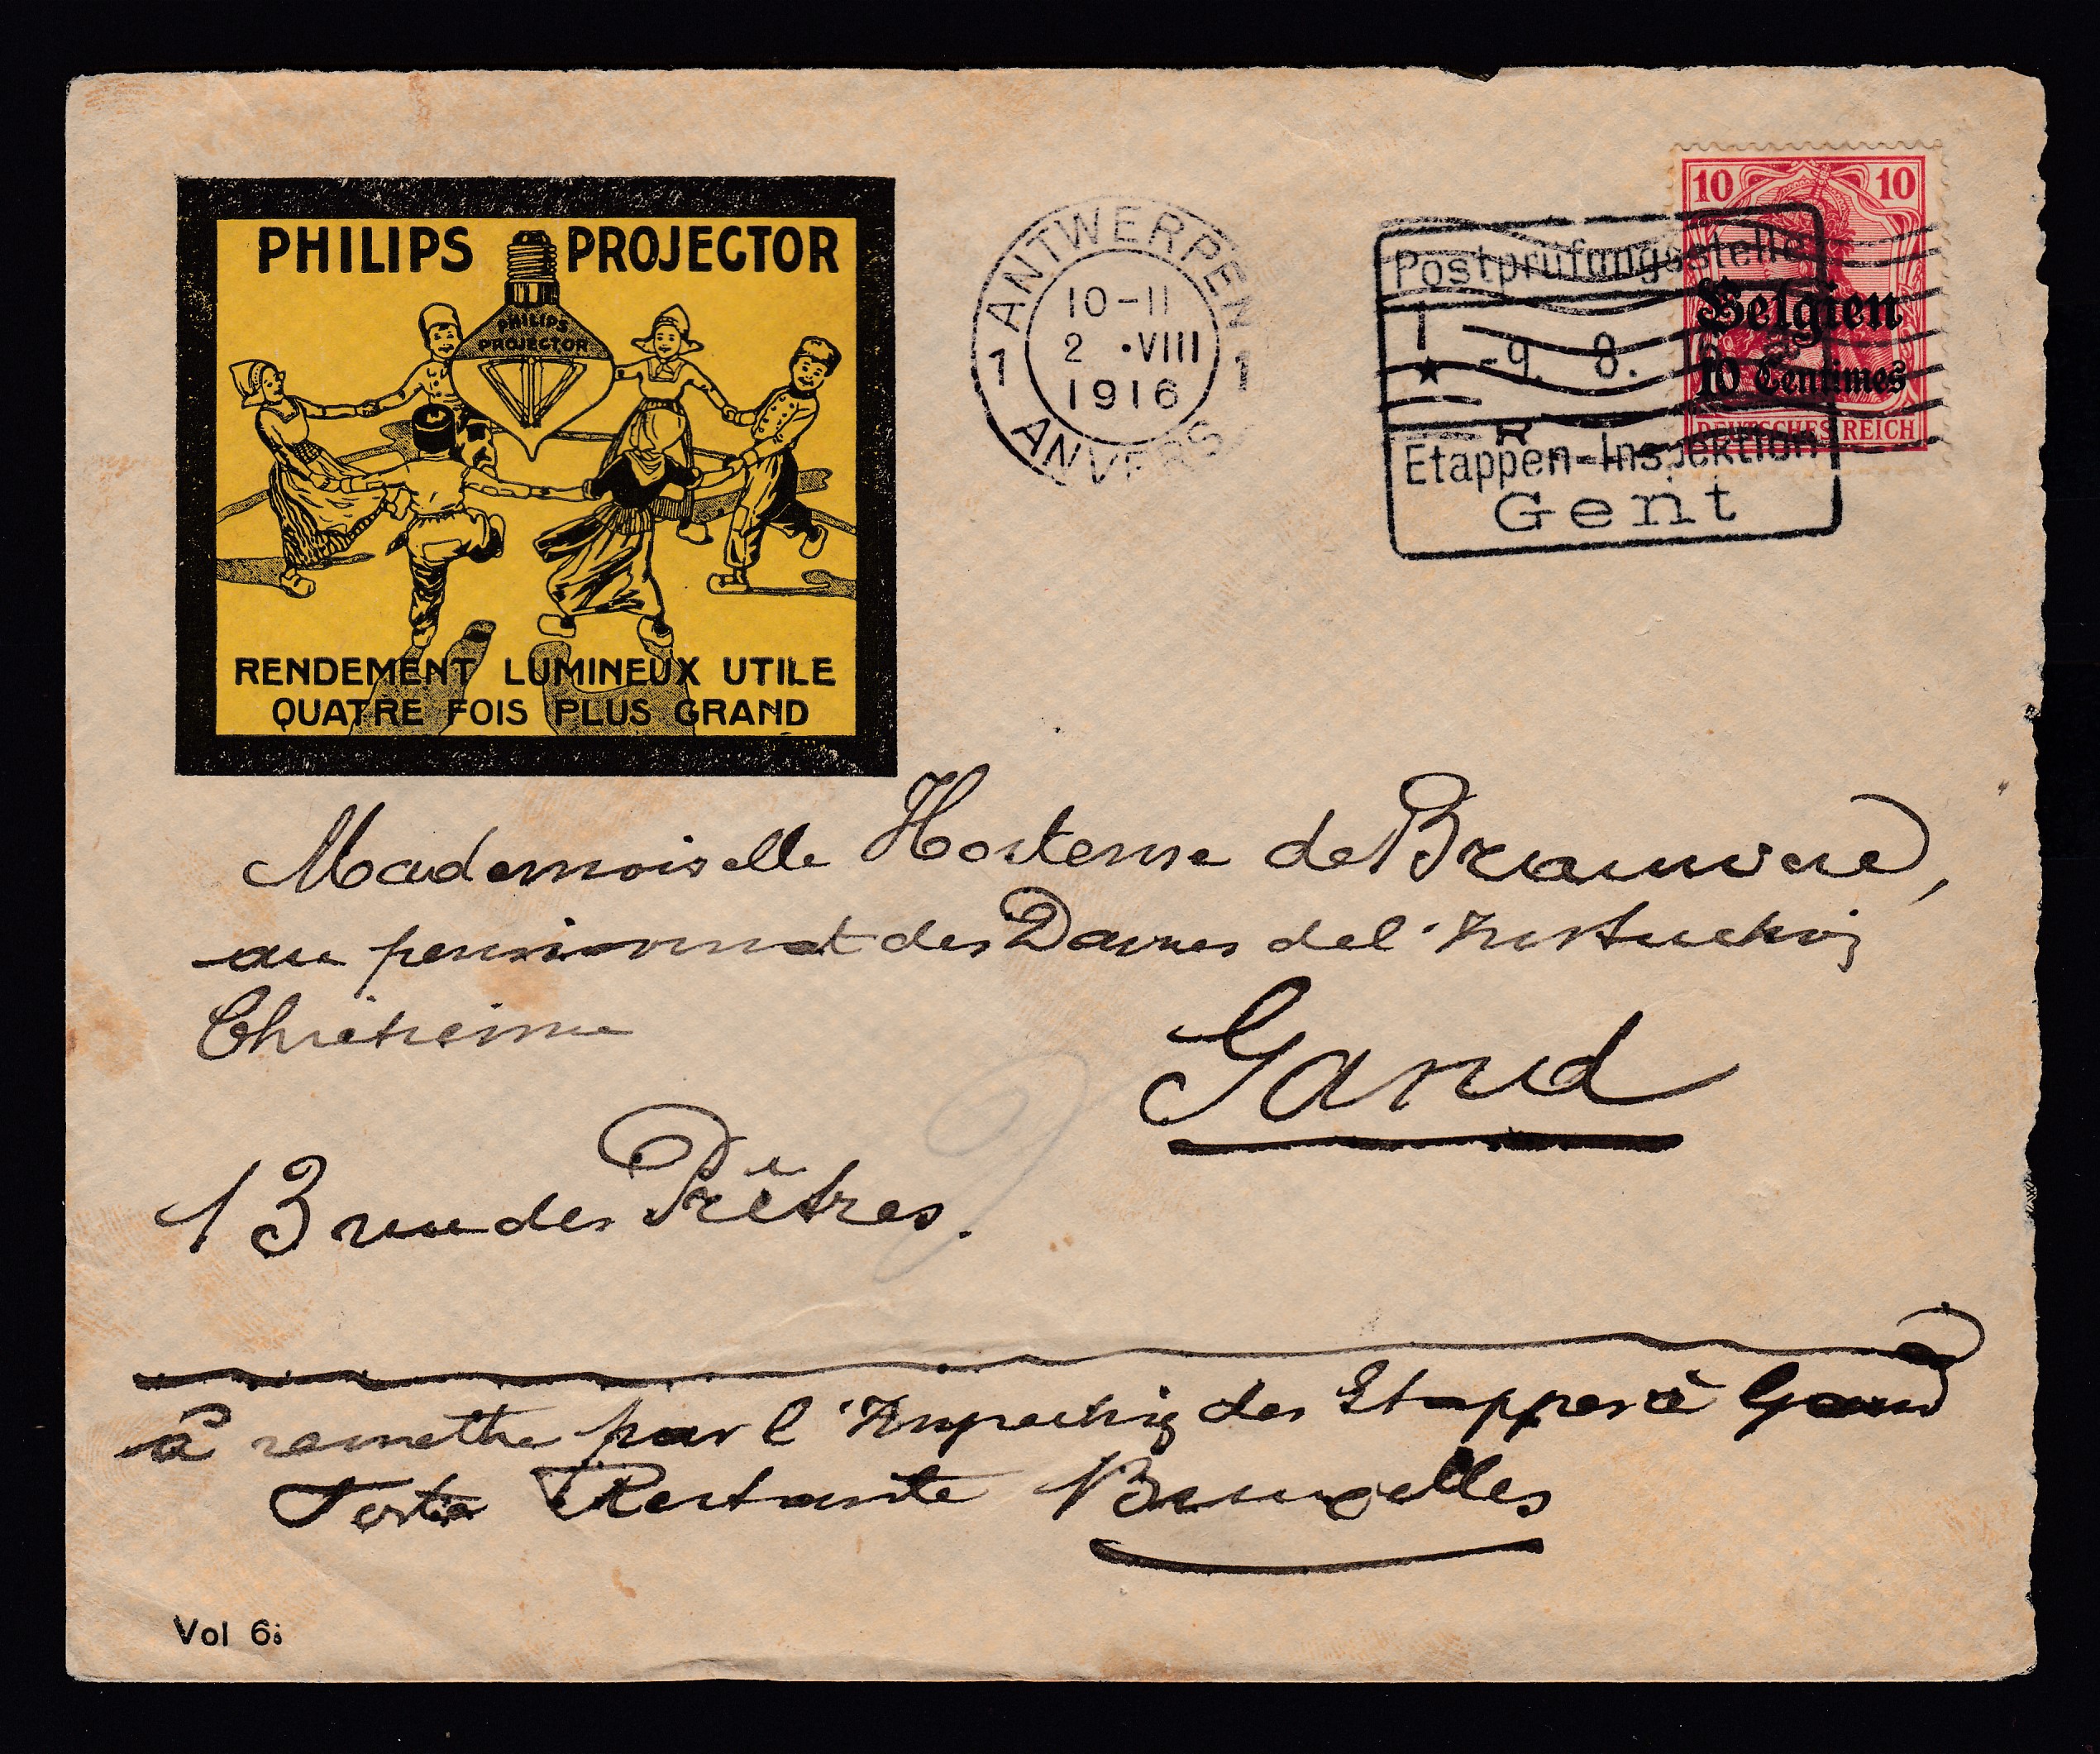 PHILIPS PROJECTOR
PHILIPS
PROJECTOR
RENDEMENT LUMINEUX UTILE
QUATRE FOIS PLUS GRAND
ANTWERPEN
1 1
10-11
2 ·VIII
1916
ANVERS
10 10
Belgien
10 Centimes
DEUTSCHES REICH
Postprüfungsstelle
1
★ -9. 8.
Etappen-Inspektion
Gent
Mademoiselle Hortense de Brauwere,
au pensionnat des Dames de l'Instruction
Chrétienne
Gand
13 rue des Prêtres.
à remettre par l'Inspection des Etappes à Gand
Poste Restante Bruxelles
Vol 6i